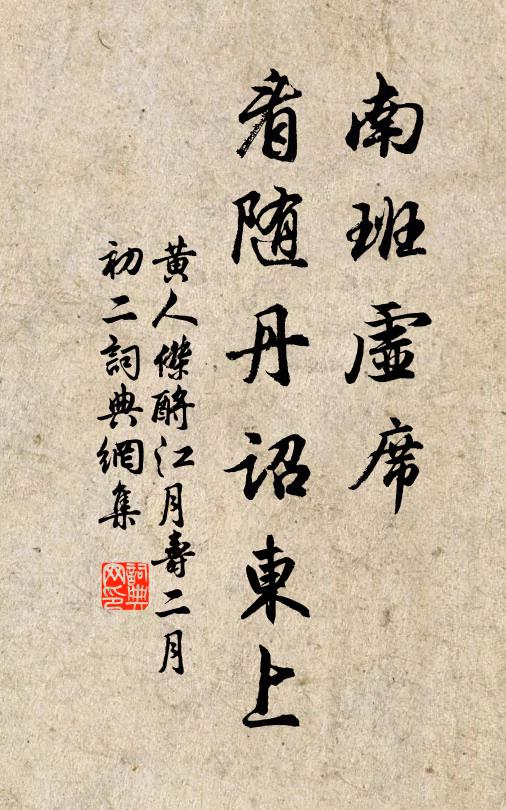 南班虛席
看随丹詔東上
黃人傑酹江月壽二月
初二詞典網集
詞典
网